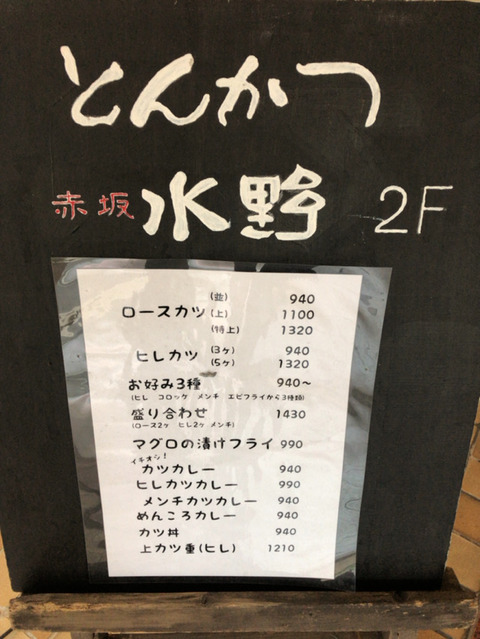 とんかつ
赤坂 水野 2F
(並) 940
ロースカツ (上) 1100
(特上) 1320
ヒレカツ (3ヶ) 940
(5ヶ) 1320
お好み3種 940～
(ヒレ コロッケ メンチ エビフライから3種類)
盛り合わせ 1430
(ロース2ヶ ヒレ2ヶ メンチ)
マグロの漬けフライ 990
イチオシ!
カツカレー 940
ヒレカツカレー 990
メンチカツカレー 940
めんころカレー 940
カツ丼 940
上カツ重(ヒレ) 1210